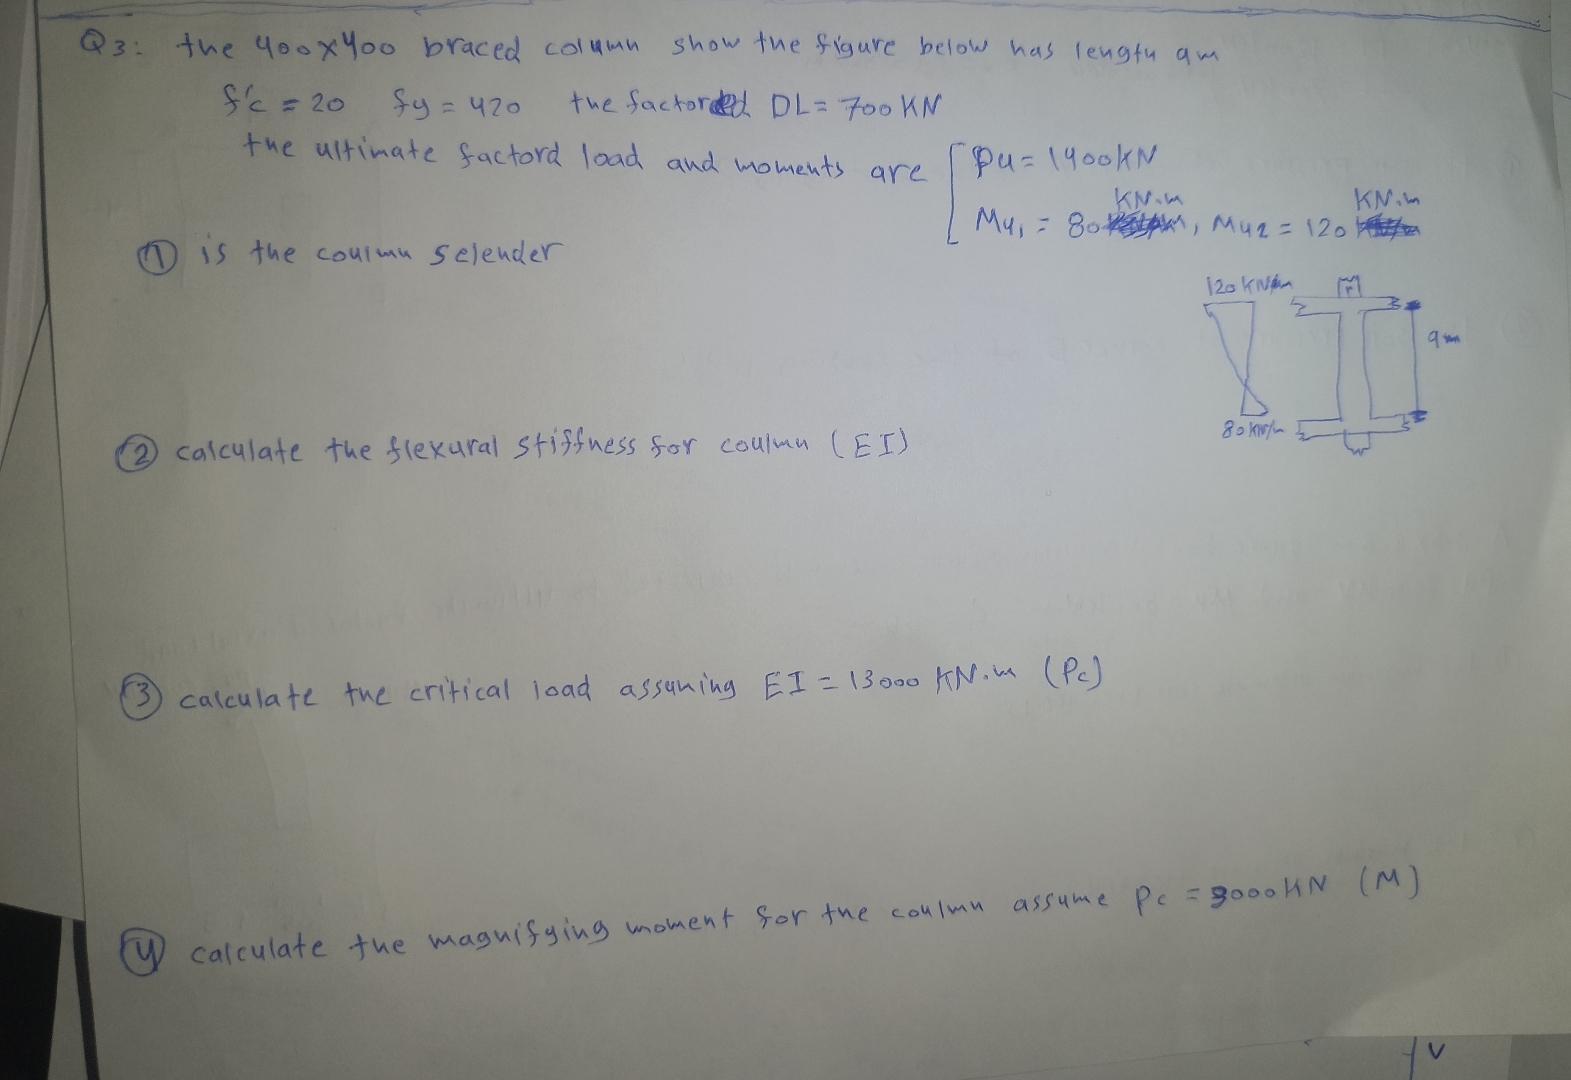 Q3: the 400x400 braced column show the figure below has length 9m
f'c = 20 fy = 420 the factored DL= 700 KN
the ultimate factord load and moments are
Pu= 1400KN
KN.m KN.m
Mu1 = 80, Mu2 = 120
① is the coulmn selender
120 KN/m
9m
80 KN/m
② calculate the flexural stiffness for coulmn (EI)
③ calculate the critical load assuming EI = 13000 KN.m (Pc)
④ calculate the magnifying moment for the coulmn assume Pc = 3000KN (M)